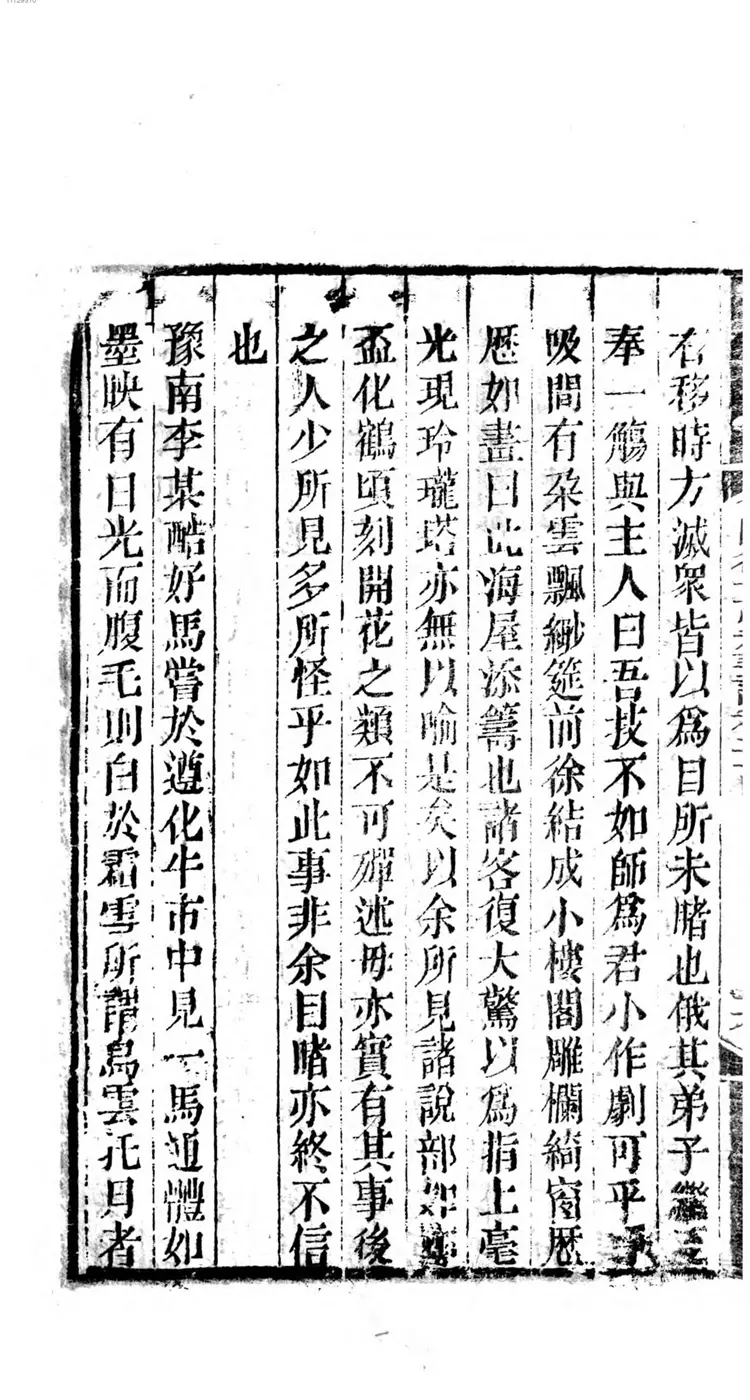 右移時方滅衆皆以爲目所未睹也俄其弟子
奉一觴與主人曰吾技不如師爲君小作劇可乎
吸間有朶雲飄緲筵前徐結成小樓閣雕欄綺窗厯
厯如畫曰此海屋添籌也諸客復大驚以爲指上毫
光現玲瓏塔亦無以喻是矣以余所見諸說部如
盃化鶴頃刻開花之類不可殫述毋亦實有其事後
之人少所見多所怪乎如此事非余目睹亦終不信
也
豫南李某酷好馬嘗於遵化牛市中見一馬通體如
墨映有日光而腹毛則白於霜雪所謂烏雲托月者